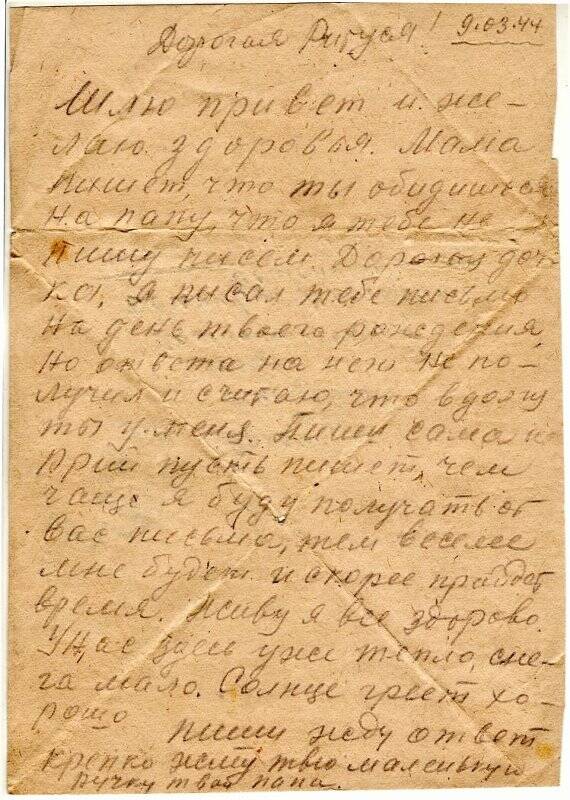 Дорогая Ритуся! 9.03.44
Шлю привет и же-
лаю здоровья. Мама
пишет, что ты обидишься
на папу, что я тебе не
пишу писем. Дорогая доч-
ка, я писал тебе письмо
на день твоего рождения,
но ответа на него не по-
лучил и считаю, что в долгу
ты у меня. Пиши сама и
Юрий пусть пишет, чем
чаще я буду получать от
вас письма, тем веселее
мне будет и скорее пройдет
время. Живу я все здорово.
У нас здесь уже тепло, сне-
га мало. Солнце греет хо-
рошо
пиши жду ответ
крепко жму твою маленькую
ручку твой папа.